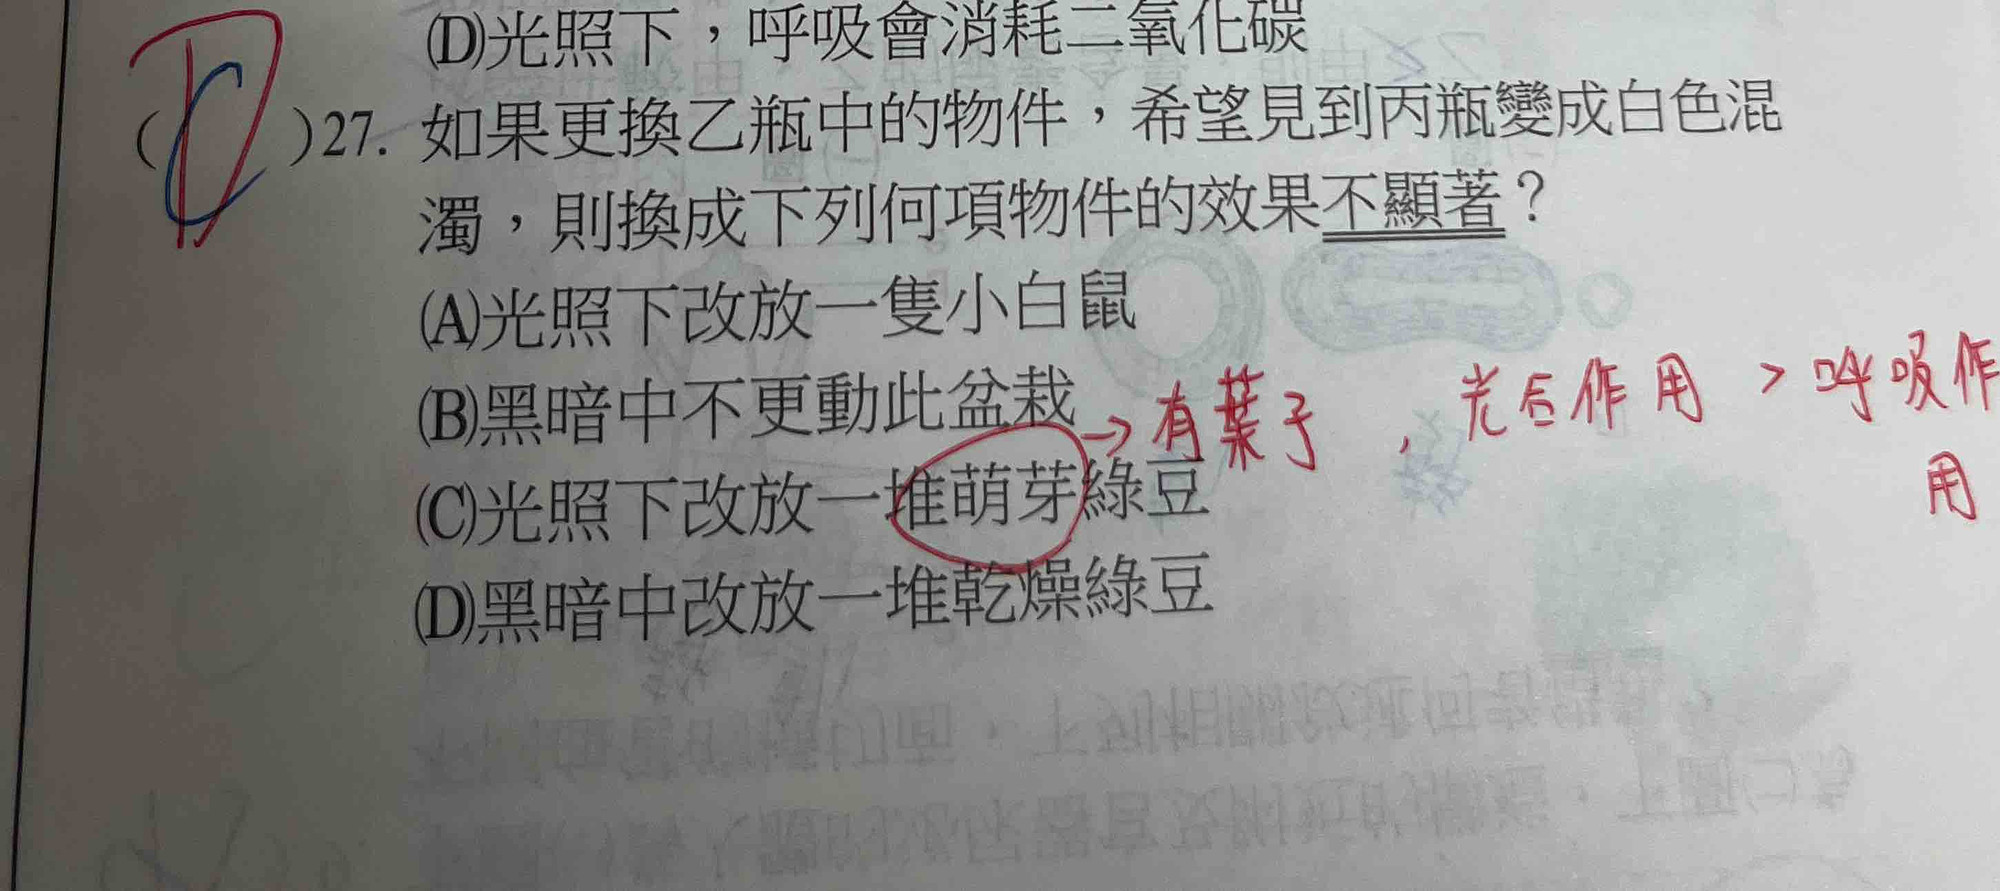 (D)光照下，呼吸會消耗二氧化碳
( C D )27. 如果更換乙瓶中的物件，希望見到丙瓶變成白色混
濁，則換成下列何項物件的效果不顯著？
(A)光照下改放一隻小白鼠
(B)黑暗中不更動此盆栽
→有葉子，光合作用 > 呼吸作
用
(C)光照下改放一堆萌芽綠豆
(D)黑暗中改放一堆乾燥綠豆